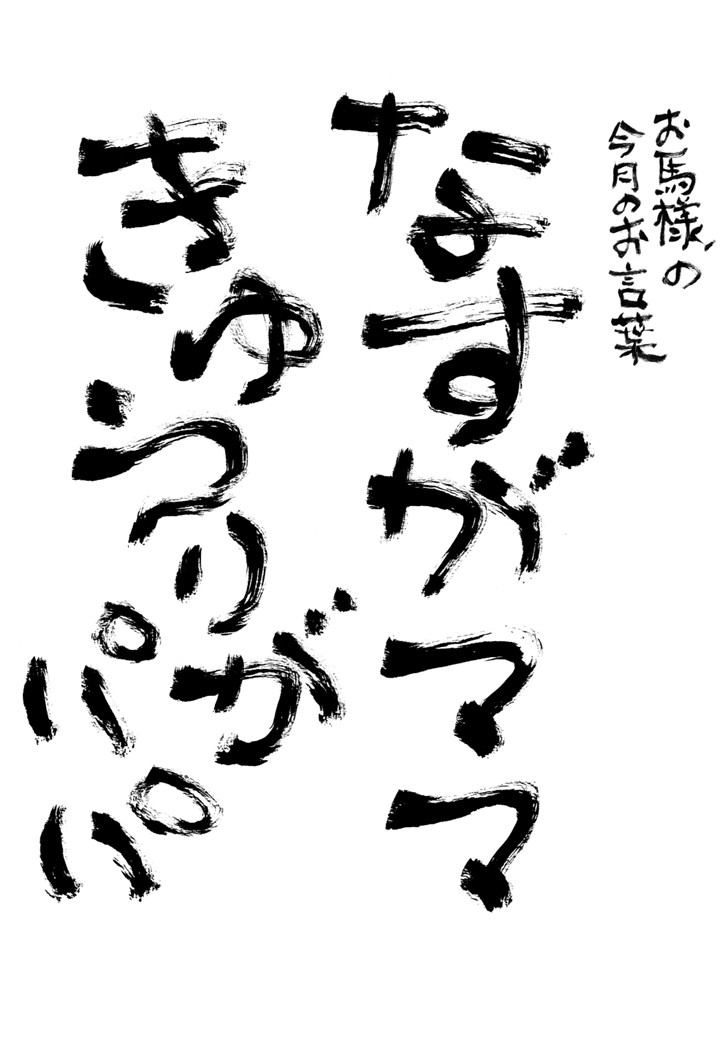 お馬様の
今月のお言葉
なすがママ
きゅうりが
パパ